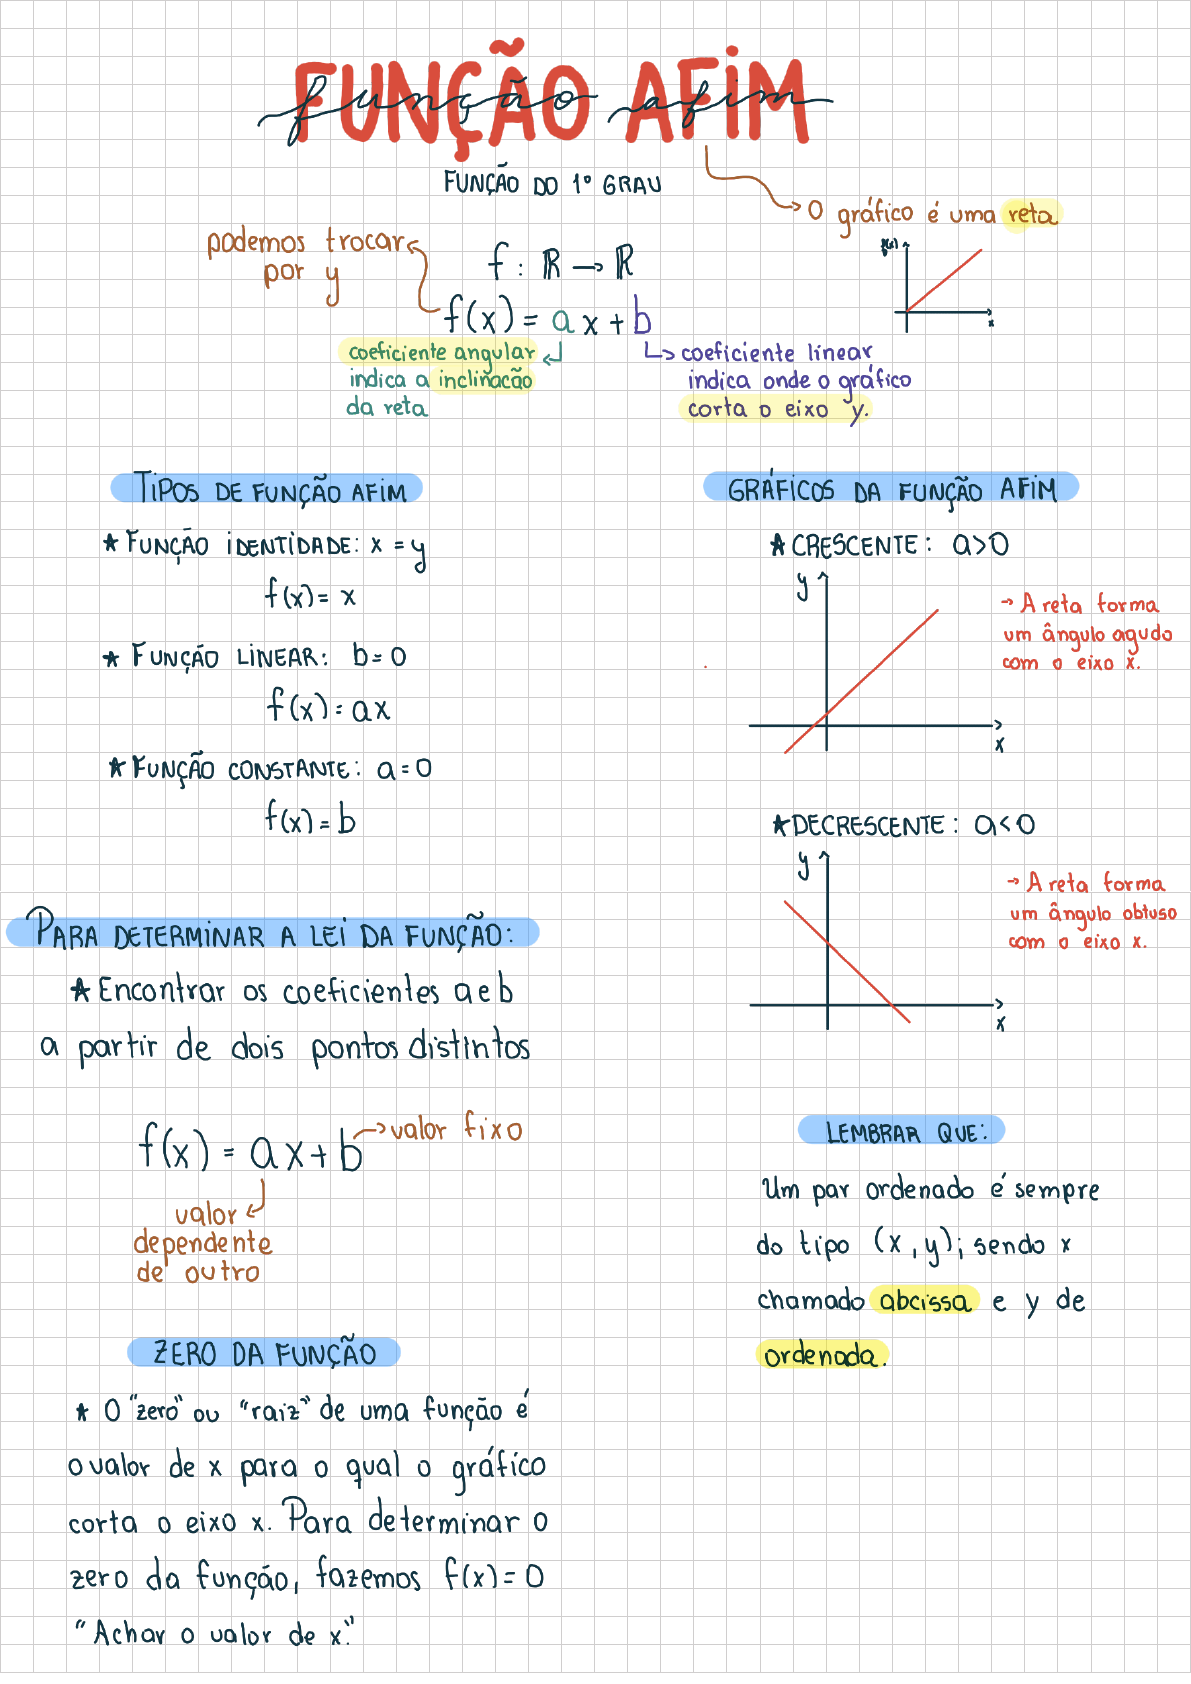 FUNÇÃO AFIM
função afim
FUNÇÃO DO 1º GRAU
O gráfico é uma reta
f(x)
x
podemos trocar
por y
f : ℝ → ℝ
f(x) = ax + b
coeficiente angular
indica a inclinação
da reta
coeficiente linear
indica onde o gráfico
corta o eixo y.
TIPOS DE FUNÇÃO AFIM
★ FUNÇÃO IDENTIDADE: x = y
f(x) = x
★ FUNÇÃO LINEAR: b = 0
f(x) = ax
★ FUNÇÃO CONSTANTE: a = 0
f(x) = b
GRÁFICOS DA FUNÇÃO AFIM
★ CRESCENTE: a > 0
y
x
→ A reta forma
um ângulo agudo
com o eixo x.
★ DECRESCENTE: a < 0
y
x
→ A reta forma
um ângulo obtuso
com o eixo x.
PARA DETERMINAR A LEI DA FUNÇÃO:
★ Encontrar os coeficientes a e b
a partir de dois pontos distintos
f(x) = ax + b → valor fixo
valor
dependente
de outro
ZERO DA FUNÇÃO
★ O "zero" ou "raiz" de uma função é
o valor de x para o qual o gráfico
corta o eixo x. Para determinar o
zero da função, fazemos f(x) = 0
"Achar o valor de x."
LEMBRAR QUE:
Um par ordenado é sempre
do tipo (x, y); sendo x
chamado abcissa e y de
ordenada.